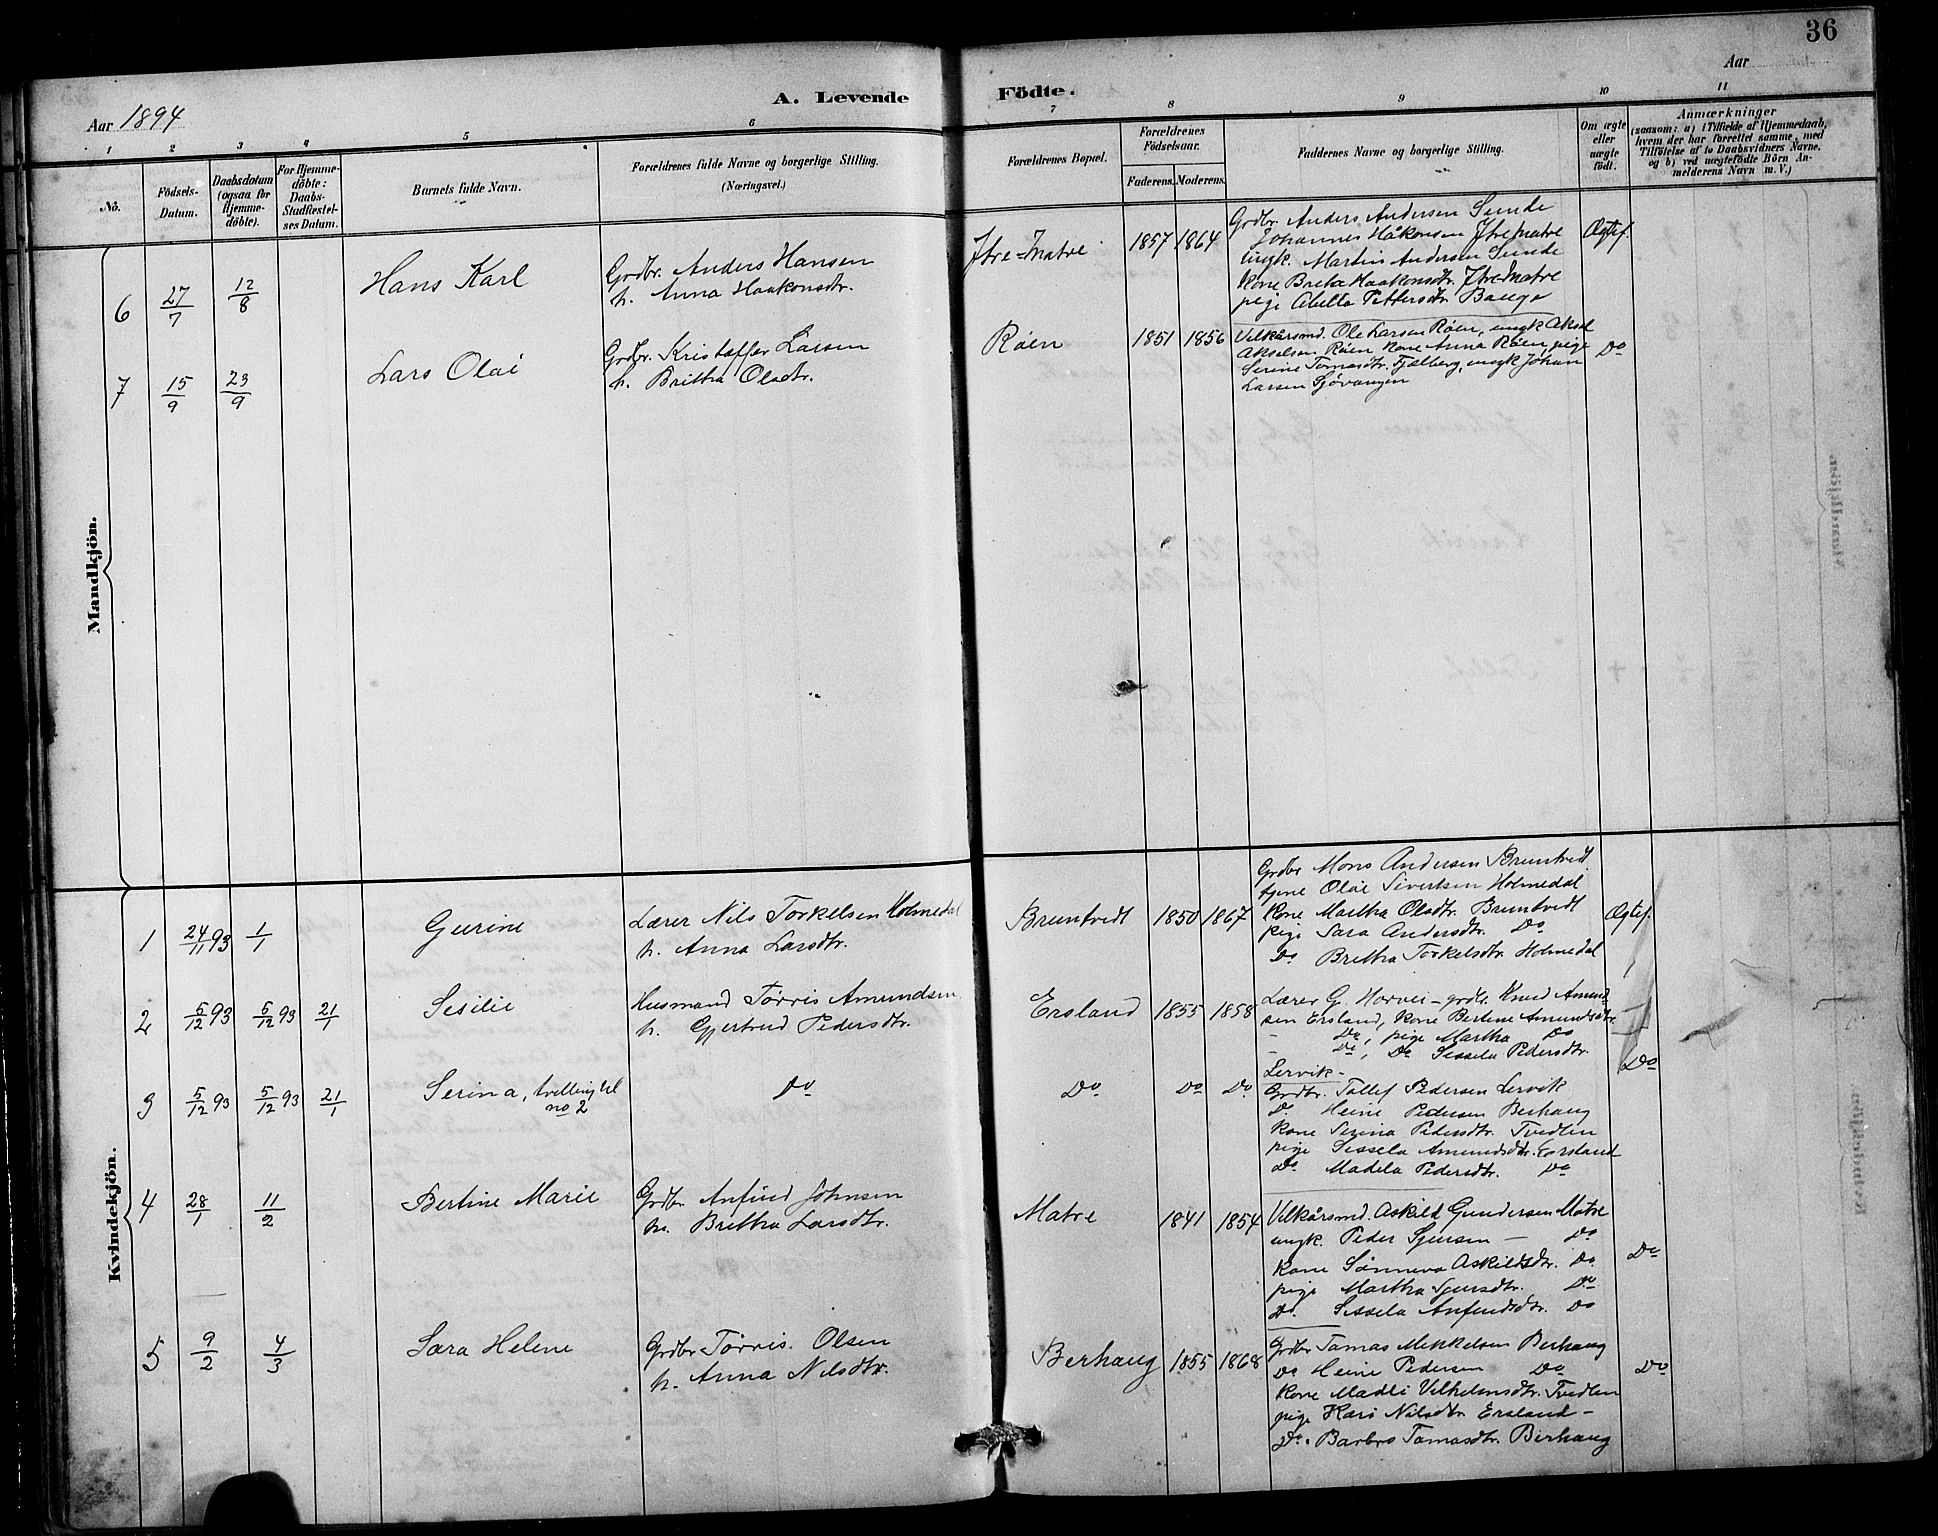 36
Aar 1894
A. Levende Födte.
Aar
1 2 3 4 5 6 7 8 9 10 11
No.
Födsels-Datum.
Daabsdatum (ogsaa for Hjemme-döbte).
For Hjemme-döbte: Daabs-Stadfæstel-ses Datum.
Barnets fulde Navn.
Forældrenes fulde Navne og borgerlige Stilling.
(Næringsvei.)
Forældrenes Bopæl.
Forældrenes Födselsaar.
Faderens. Moderens.
Faddernes Navne og borgerlige Stilling.
Om ægte eller uægte födt.
Anmærkninger
(saasom: a) i Tilfælde af Hjemmedaab, hvem der har forrettet samme, med Tilföielse af to Daabsvidners Navne, og b) ved uægtefödte Börn An-melderens Navn m. V.)
Mandkjön.
6 27/7 12/8 Hans Karl
Grdbr. Anders Hansen
h. Anna Haakonsdtr.
Ytre-Matre 1857 1864
Grdbr. Anders Andersen Sunde
Johannes Håkonsen Ytre Matre
ungk. Martin Andersen Sunde
Kone Breta Haakonsdtr. Ytre Matre
pige Abella Pettersdtr. Bauge
Ægtef.
7 15/9 23/9 Lars Olai
Grdbr. Kristoffer Larsen
h. Brittha Olsdtr.
Røen 1851 1856
Vilkårsmd. Ole Larsen Røen, ungk Aksel
Akselsen Røen Kone Anna Røen, pige
Serine Tomasdtr. Fjælberg, ungk Johan
Larsen Sjøvangen
Do
Kvindekjön.
1 24/11 93 1/1 Gurine
Lærer Nils Torkelsen Holmedal
h. Anna Larsdtr.
Bruntvedt 1850 1867
Grdbr Mons Andersen Bruntvedt
tjene Olai Sivertsen Holmedal
Kone Martha Olsdtr. Bruntvedt
pige Sara Andersdtr. Do
Do Brettha Torkelsdtr. Holmedal
Ægtef.
2 5/12 93 5/12 93 21/1 Sesilie
Husmand Tørris Amundsen
h. Gjertrud Pedersdtr.
Ersland 1855 1858
Lærer G. Horvei - grdb. Knud Amund-
sen Ersland, Kone Bertine Amundsdtr.
- Do, pige Martha Do
- Do, Do Sissela Pedersdtr.
Lervik -
Do
3 5/12 93 5/12 93 21/1 Serina, tvelling til
no 2
Do Do Do Do
Grdbr. Tollef Pedersen Lervik
Do Heine Pedersen Berhaug
Kone Serina Pedersdtr. Tvedten
pige Sissela Amundsdtr. Eersland
Do Madela Pedersdtr. Do
4 28/1 11/2 Bertine Marie
Grdbr Anfind Johnsen
h. Brettha Larsdtr.
Matre 1841 1854
Vilkårsmd. Askild Gundersen Matre
ungk. Peder Sjursen - Do
Kone Sønneva Askildsdtr. Do
pige Martha Sjursdtr. Do
Do. Sissela Anfindsdtr. Do
Do
5 9/2 4/3 Sara Helene
Grdbr Tørris Olsen
h. Anna Nilsdtr.
Berhaug 1855 1868
Grdbr Tomas Mekkelsen Berhaug
Do Heine Pedersen Do
Kone Madli Vilhelmsdtr. Tvedten
pige Kari Nilsdtr. Ersland -
Do. Barbro Tomasdtr. Berhaug
Do